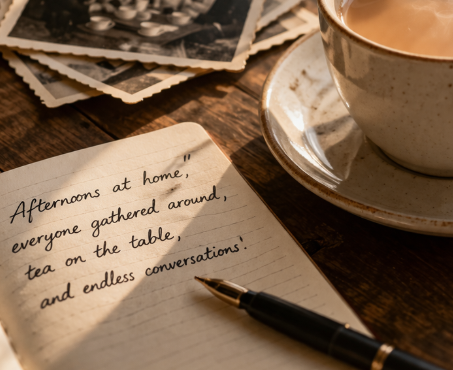 Afternoons at home,"
everyone gathered around,
tea on the table,
and endless conversations'.